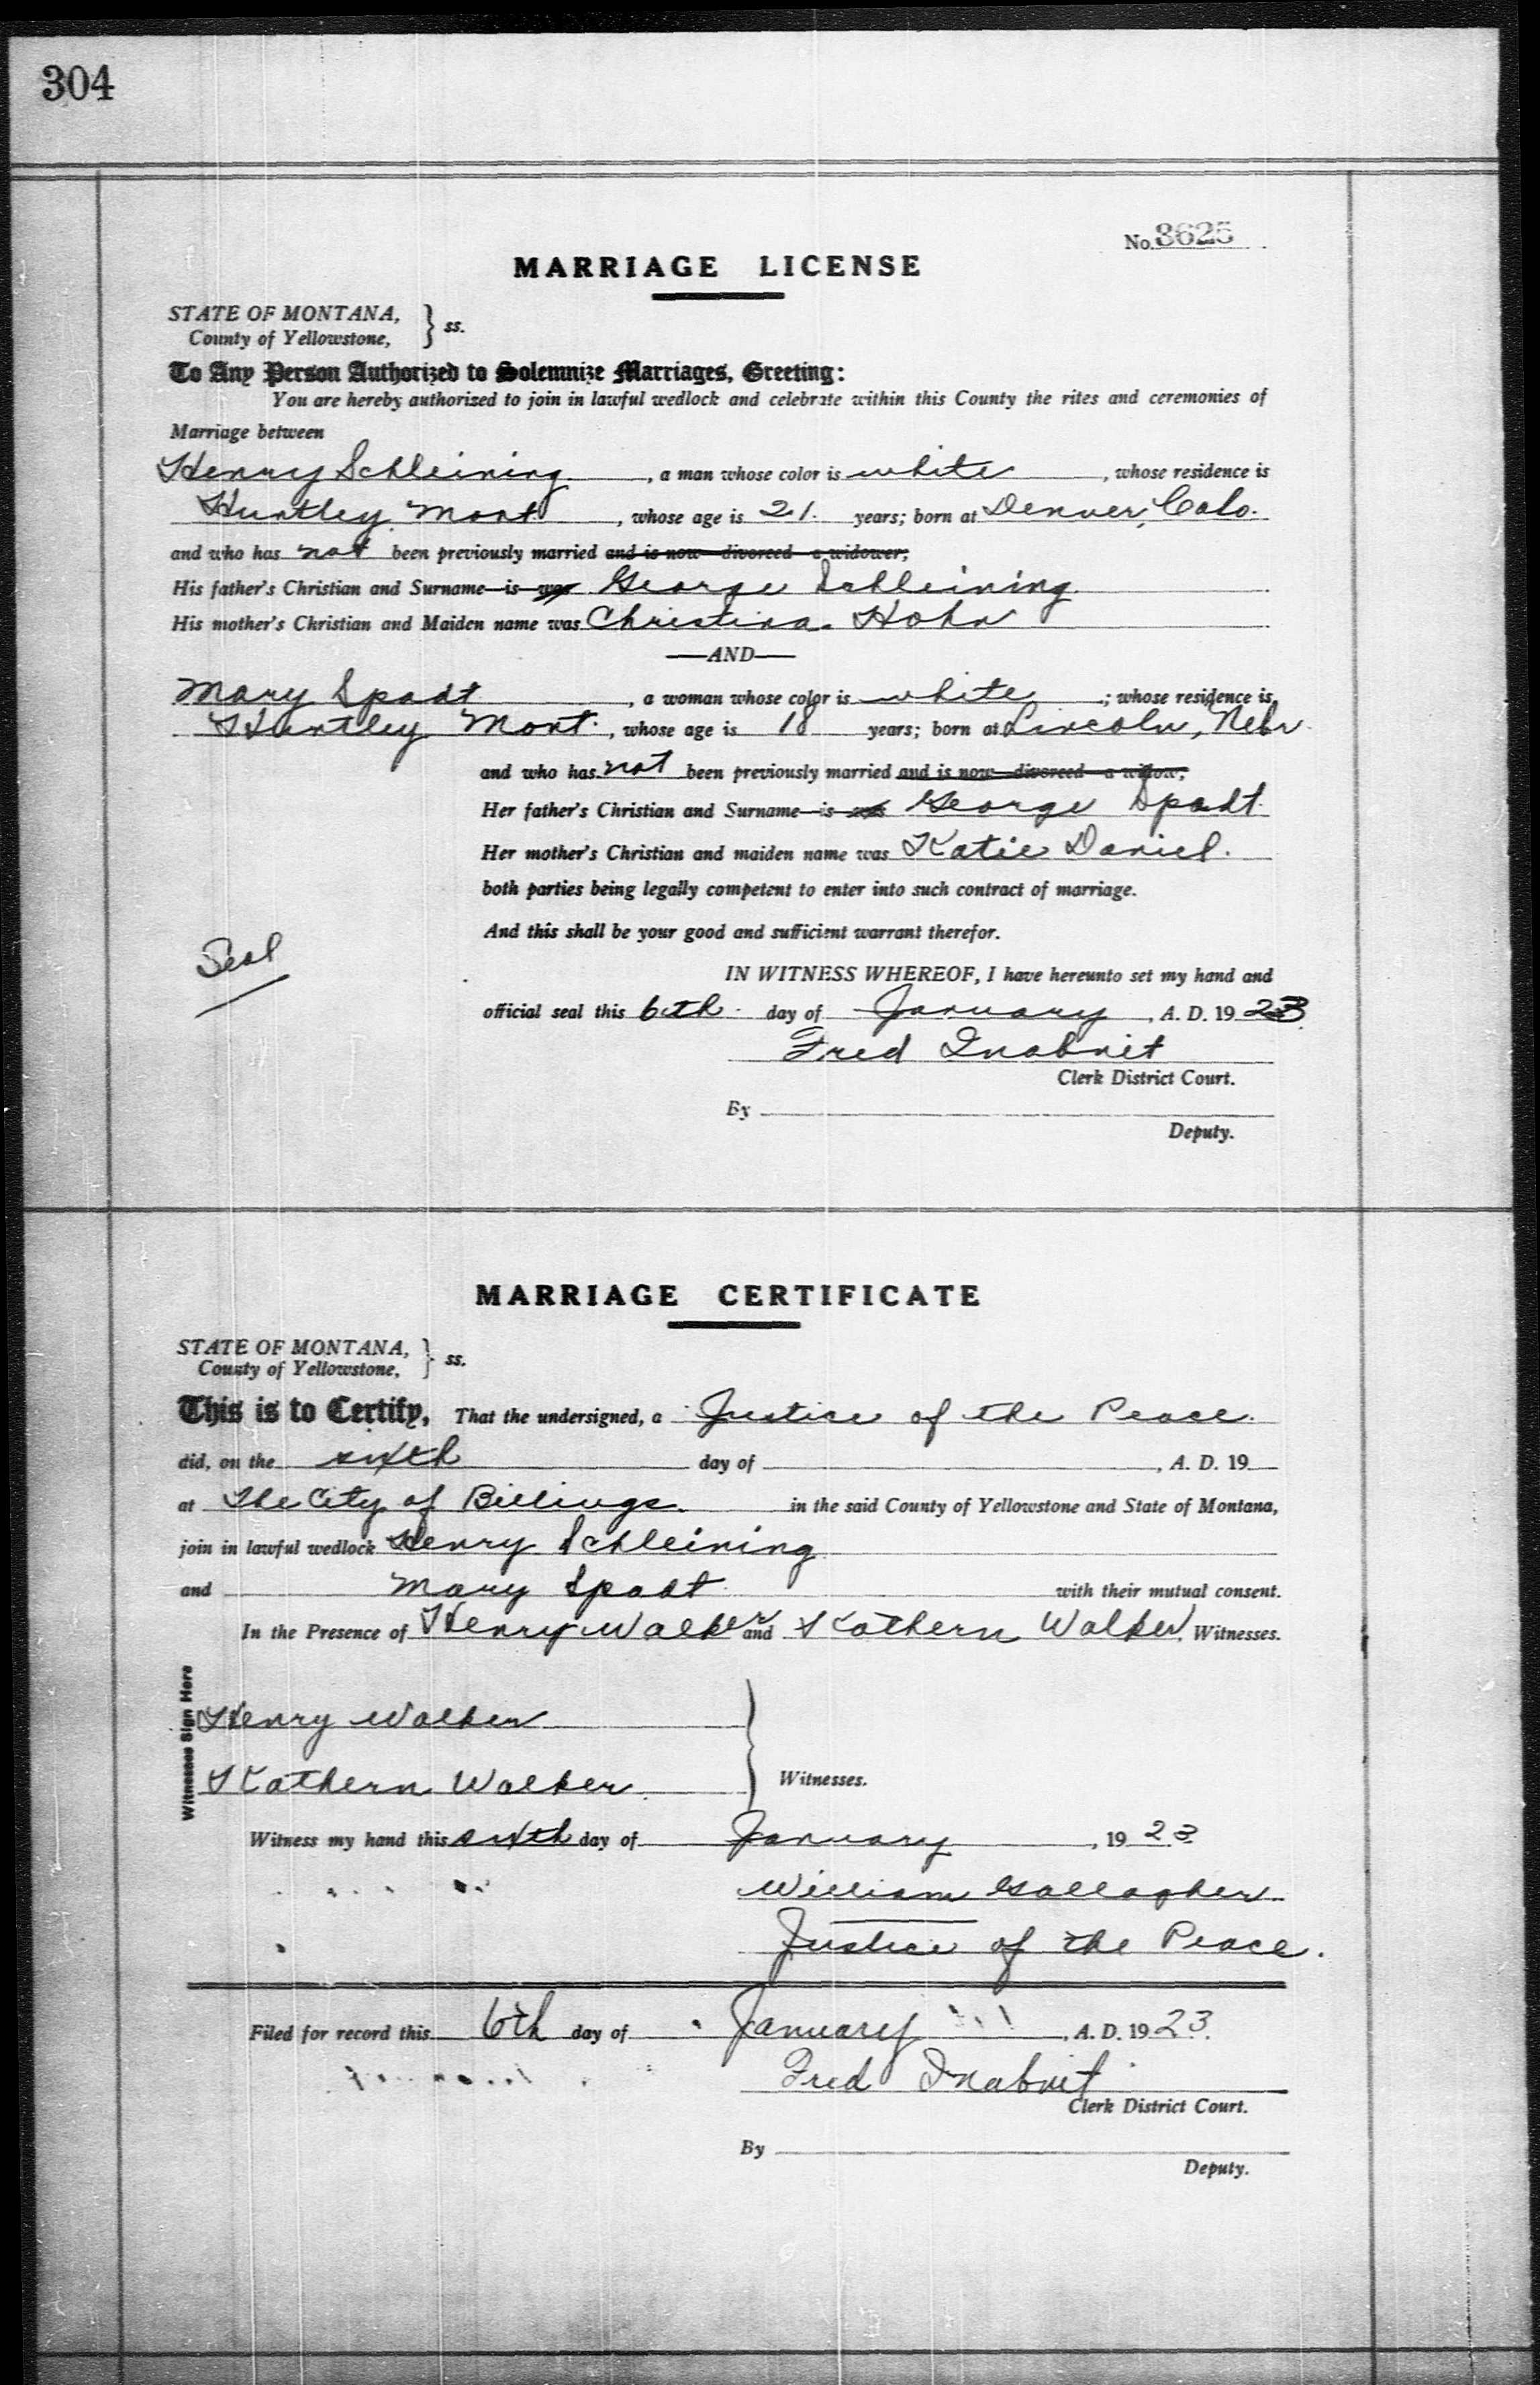 304
No. 3625
MARRIAGE LICENSE
STATE OF MONTANA,
County of Yellowstone, } ss.
To Any Person Authorized to Solemnize Marriages, Greeting:
You are hereby authorized to join in lawful wedlock and celebrate within this County the rites and ceremonies of
Marriage between
Henry Schleining, a man whose color is white, whose residence is
Huntley, Mont, whose age is 21. years; born at Denver, Colo.
and who has not been previously married and is now divorced a widower;
His father's Christian and Surname is was George Schleining.
His mother's Christian and Maiden name was Christina Hohn
—AND—
Mary Spadt, a woman whose color is white; whose residence is
Huntley Mont., whose age is 18 years; born at Lincoln, Nebr.
and who has not been previously married and is now divorced a widow;
Her father's Christian and Surname is was George Spadt.
Her mother's Christian and maiden name was Katie Daniel.
both parties being legally competent to enter into such contract of marriage.
And this shall be your good and sufficient warrant therefor.
Seal
IN WITNESS WHEREOF, I have hereunto set my hand and
official seal this 6th day of January, A. D. 1923
Fred Inabnit
Clerk District Court.
By
Deputy.
MARRIAGE CERTIFICATE
STATE OF MONTANA,
County of Yellowstone, } ss.
This is to Certify, That the undersigned, a Justice of the Peace.
did, on the sixth day of , A. D. 19
at The City of Billings. in the said County of Yellowstone and State of Montana,
join in lawful wedlock Henry Schleining
and Mary Spadt with their mutual consent.
In the Presence of Henry Walker and Kathern Walker, Witnesses.
Witnesses Sign Here
Henry Walker
Kathern Walker. } Witnesses.
Witness my hand this sixth day of January, 1923
William Gallagher.
Justice of the Peace.
Filed for record this 6th day of January, A. D. 1923.
Fred Inabnit
Clerk District Court.
By
Deputy.